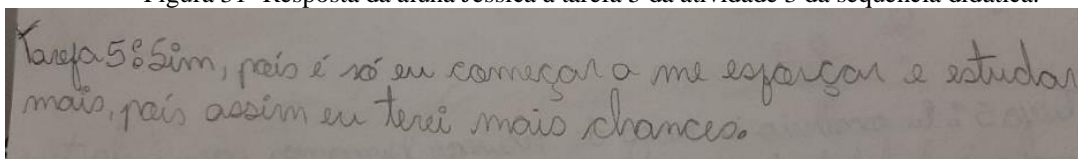 Figura 31- Resposta da aluna Jéssica a tarefa 5 da atividade 3 da sequência didática.
Tarefa 5: Sim, pois é só eu começar a me esforçar e estudar
mais, pois assim eu terei mais chances.